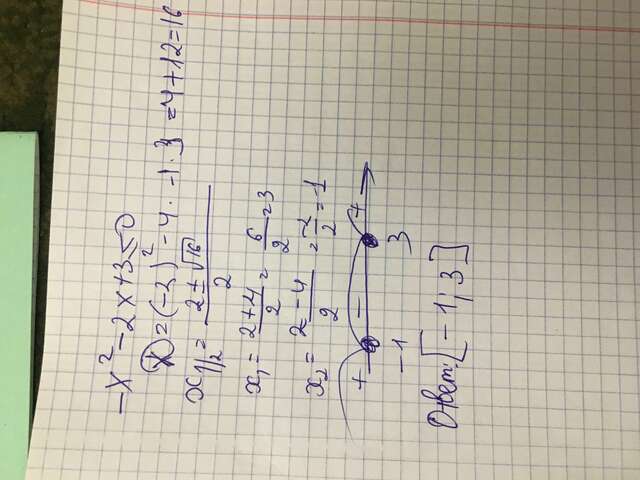 -x² - 2x + 3 ≤ 0
D = (-2)² - 4 · -1 · 3 = 4 + 12 = 16
x₁/₂ = (2 ± √16)/2
x₁ = (2 + 4)/2 = 6/2 = 3
x₂ = (2 - 4)/2 = -2/2 = -1
+ - +
-1 3
Ответ: [-1; 3]